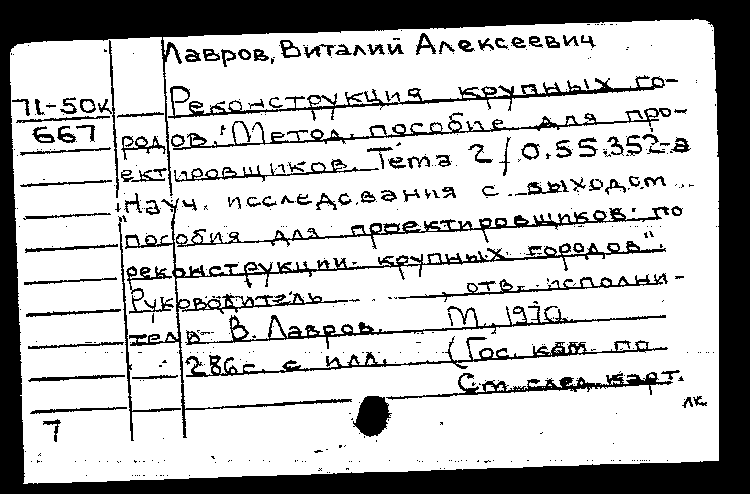 Лавров, Виталий Алексеевич
71-50к
667
Реконструкция крупных го-
родов. Метод. пособие для про-
ектировщиков. Тема 2/0.55.352-а
"Науч. исследования с выходом
пособия для проектировщиков по
реконструкции крупных городов".
Руководитель , отв. исполни-
тель В. Лавров. М., 1970.
286с. с илл. (Гос. ком. по
См. след. карт.
лк.
7